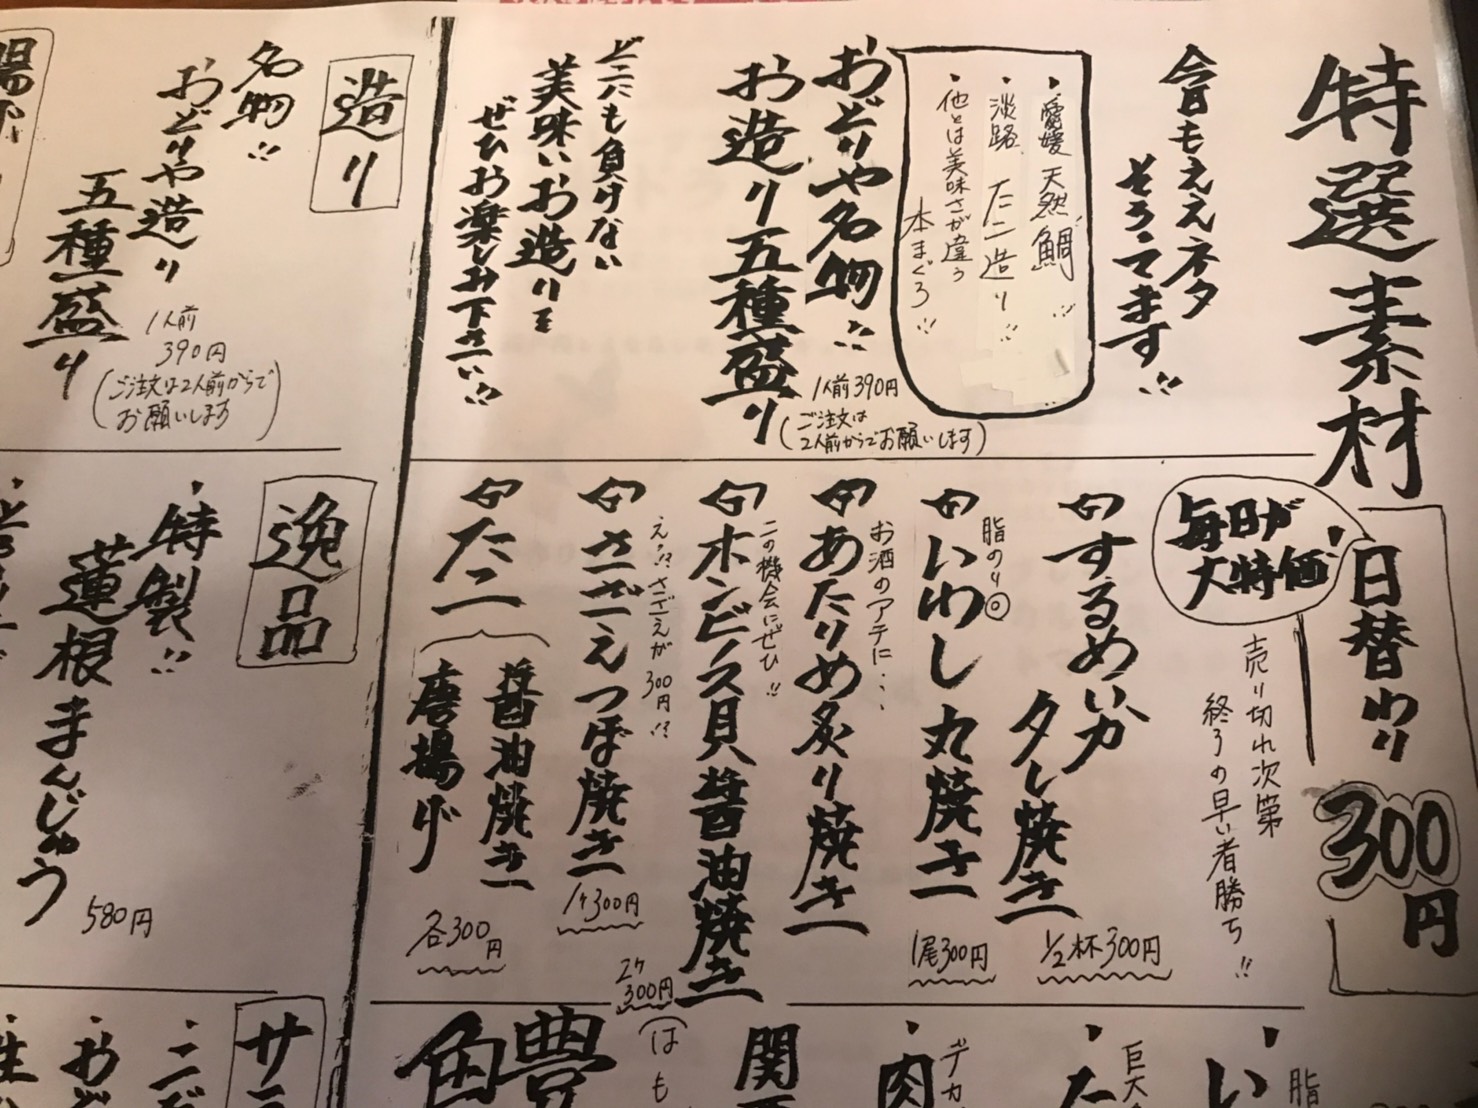 特選素材
今日もええネタ
そろてます!!
・愛媛 天然鯛!!
・淡路 たこ造り!!
・他とは美味さが違う
本まぐろ!!
おどりや名物!!
お造り五種盛り
1人前390円
(ご注文は
2人前からでお願いします)
どこにも負けない
美味いお造りを
ぜひお楽しみ下さい!!
日替わり
300円
毎日が
大特価!
売り切れ次第
終了の早い者勝ち!!
するめいか
タレ焼き
1/2杯300円
脂のり◎
いわし丸焼き
1尾300円
お酒のアテに...
あたりめ炙り焼き
この機会にぜひ!!
ホンビノス貝醤油焼き
2ケ
300円
え!?さざえが
300円!?
さざえつぼ焼き
1ケ300円
たこ
醤油焼き
唐揚げ
各300円
造り
名物!!
おどりや造り
五種盛り
1人前
390円
(ご注文は2人前からで
お願いします)
逸品
・特製!!
蓮根まんじゅう
580円
脂
・い
巨大
・た
デカ
・肉
関
(はも
豊
魚
サラ